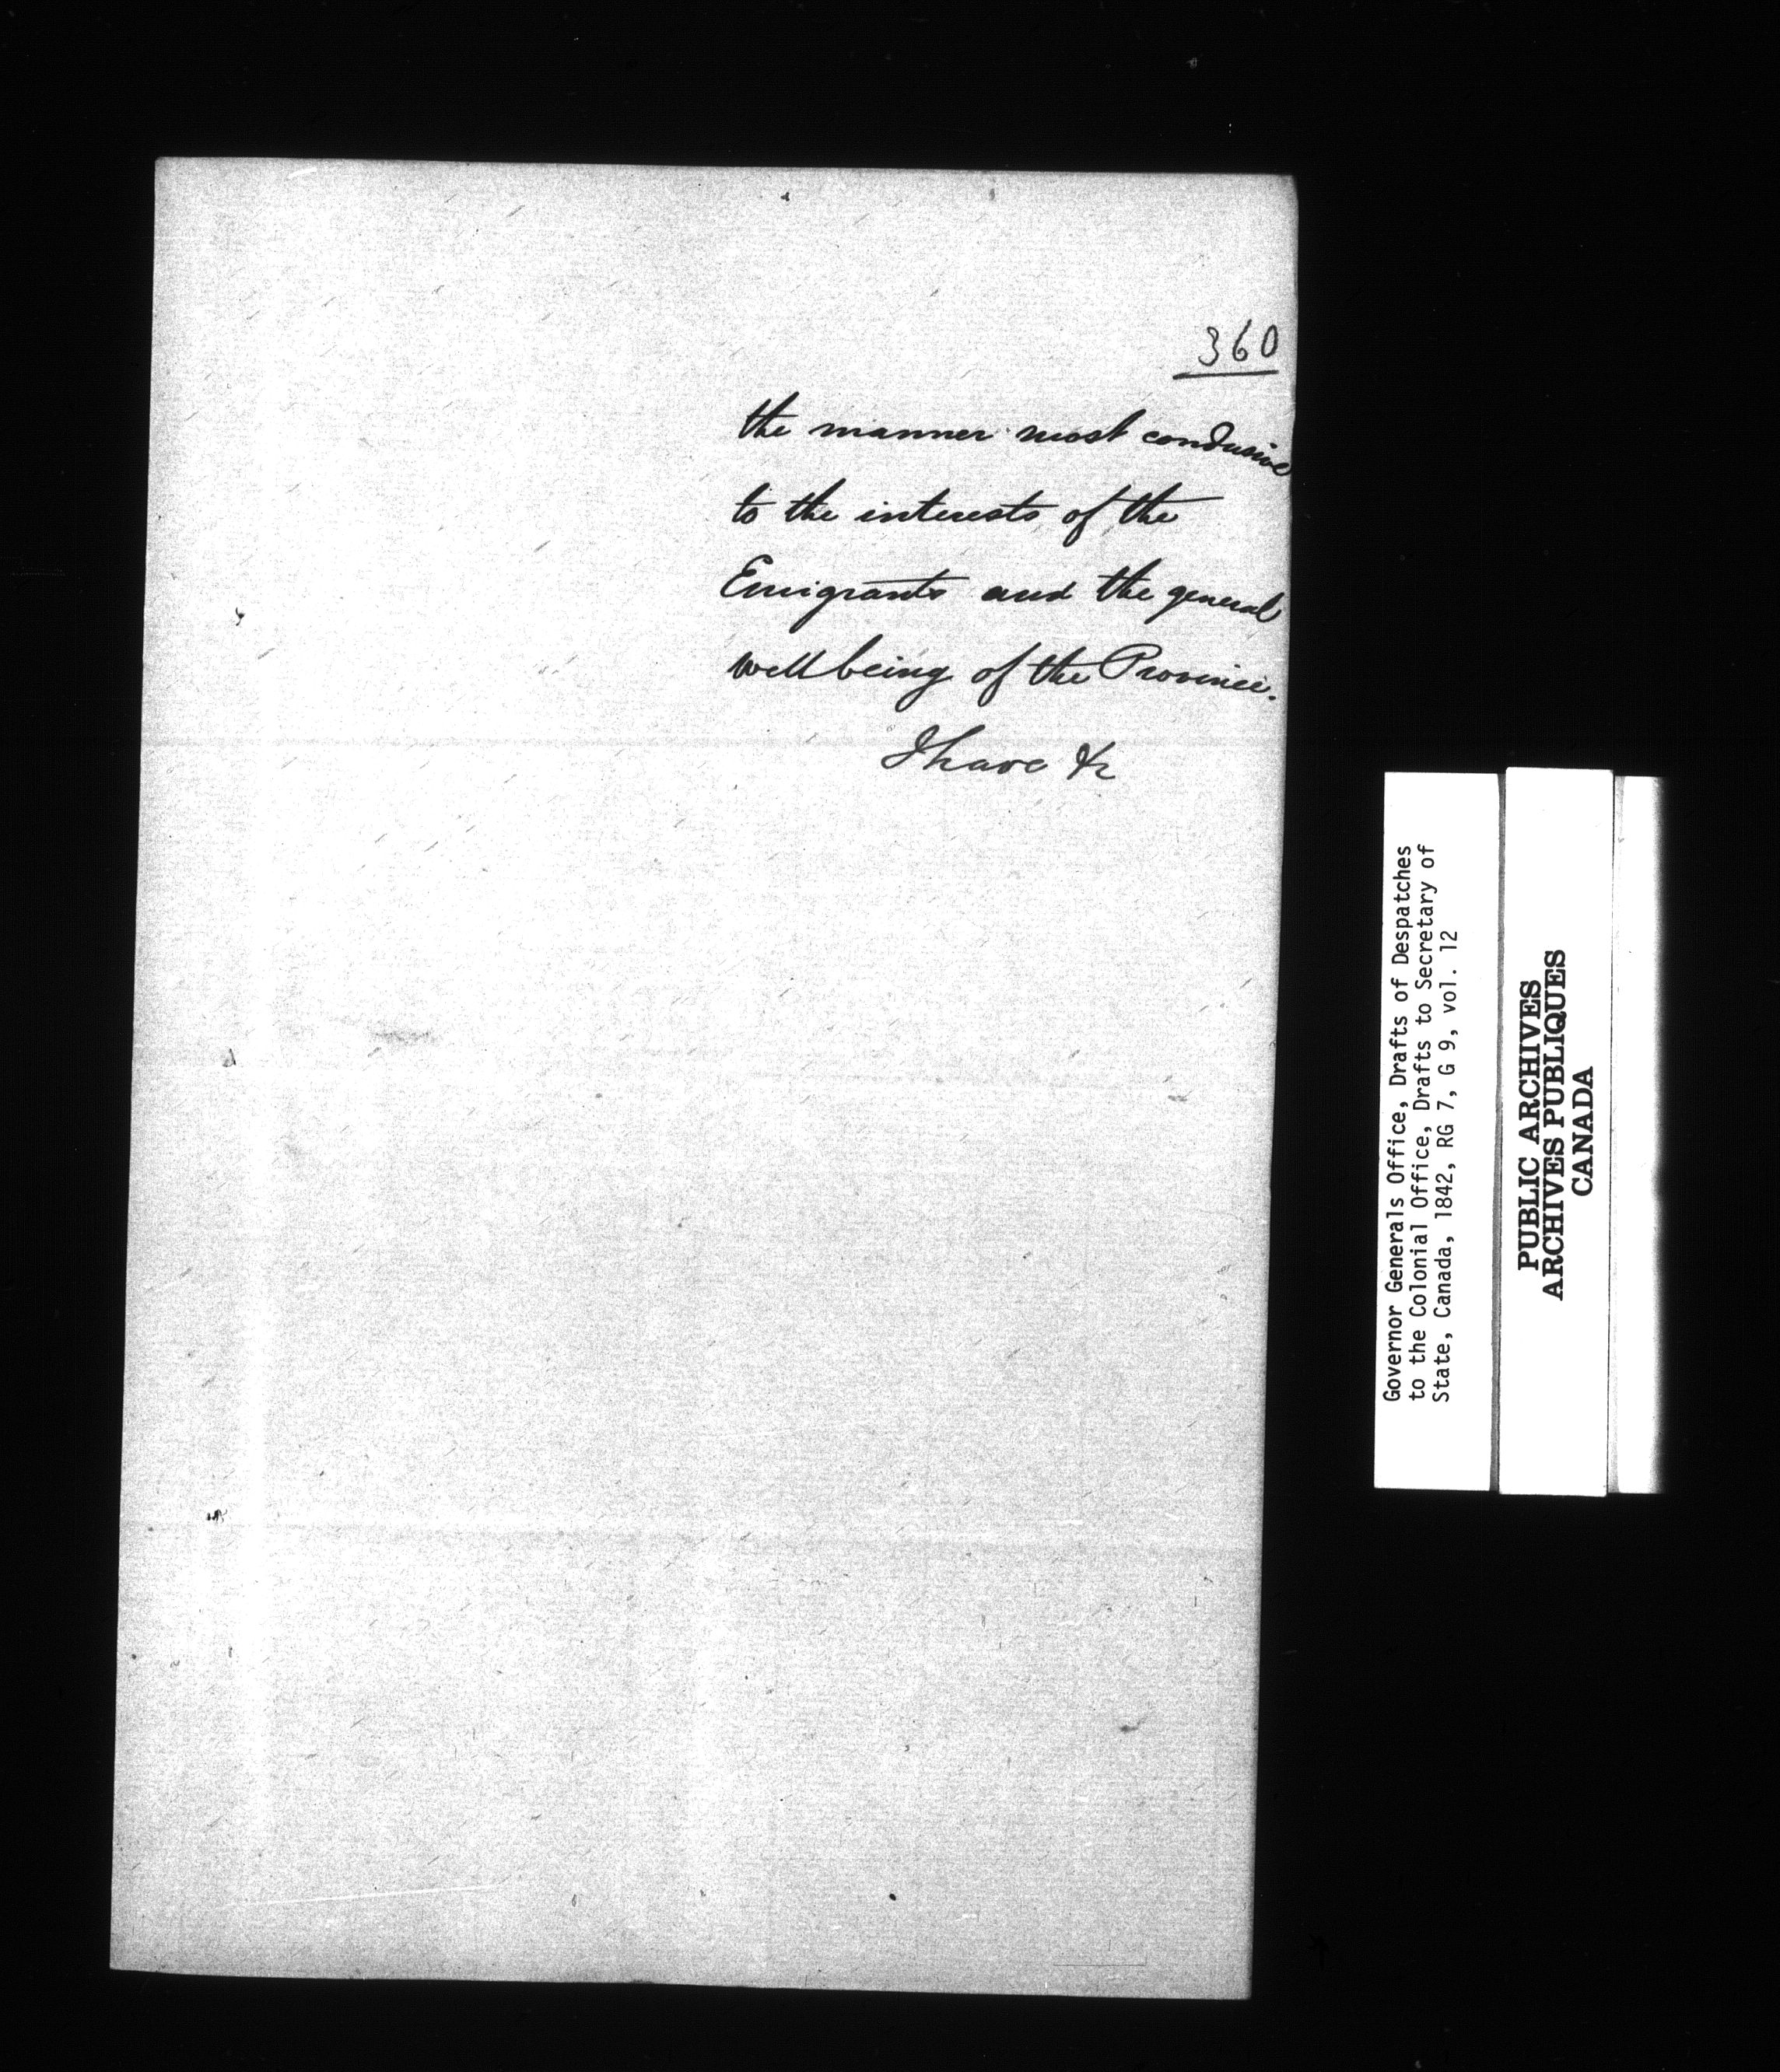 360
the manner most conducive
to the interests of the
Emigrants and the general
wellbeing of the Province.
I have &c
Governor Generals Office, Drafts of Despatches
to the Colonial Office, Drafts to Secretary of
State, Canada, 1842, RG 7, G 9, vol. 12
PUBLIC ARCHIVES
ARCHIVES PUBLIQUES
CANADA